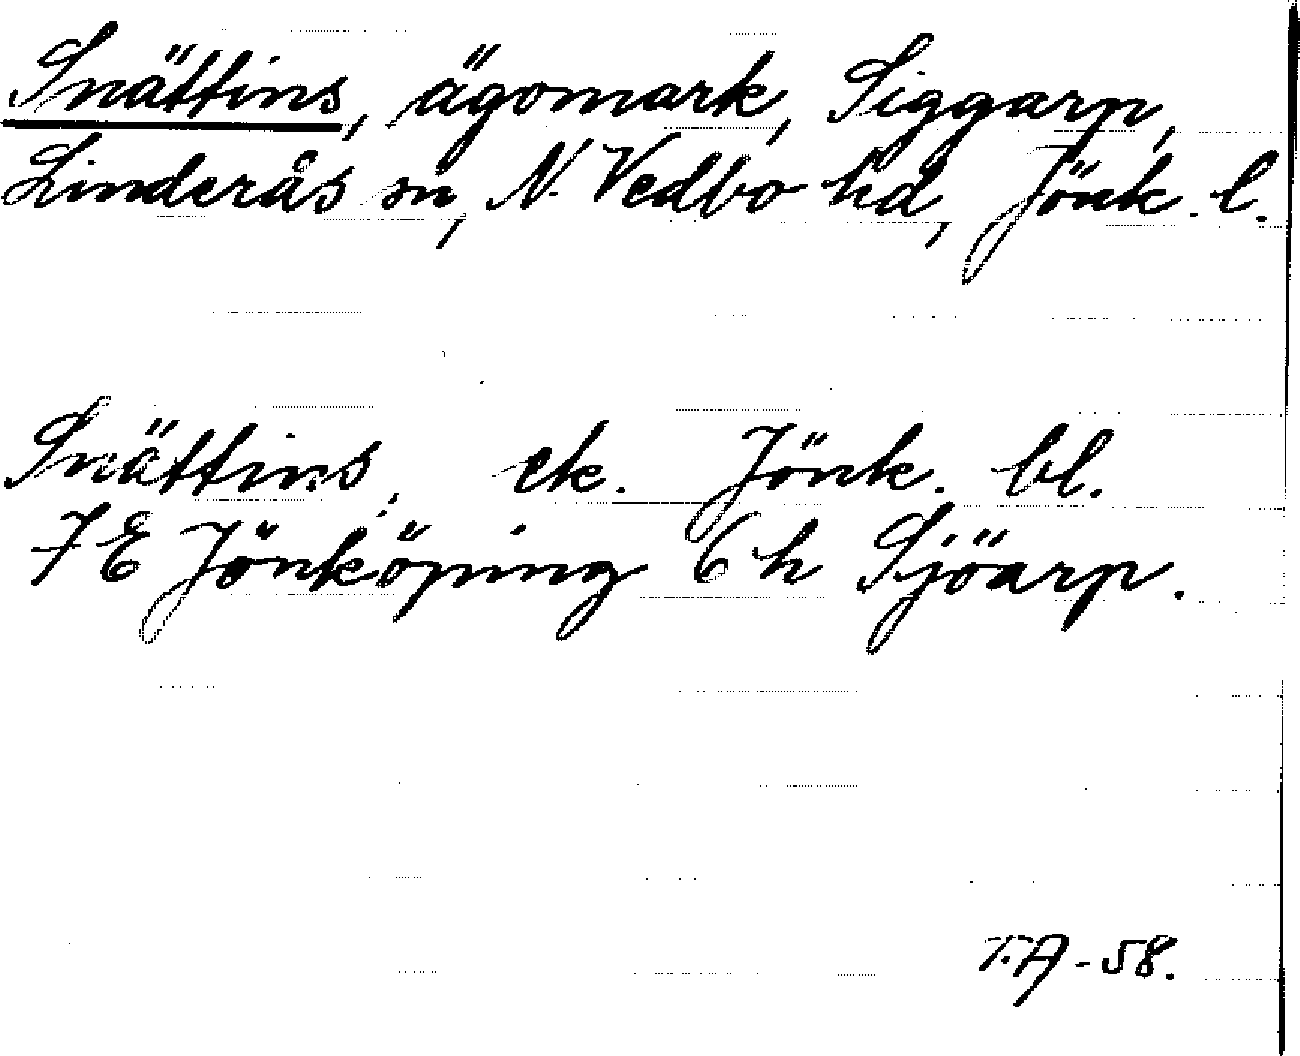 Snättins, ägomark, Siggarp,
Linderås sn, N. Vedbo hd, Jönk. l.
Snättins, ek. Jönk. bl.
7E Jönköping 6h Sjöarp.
T.A-58.